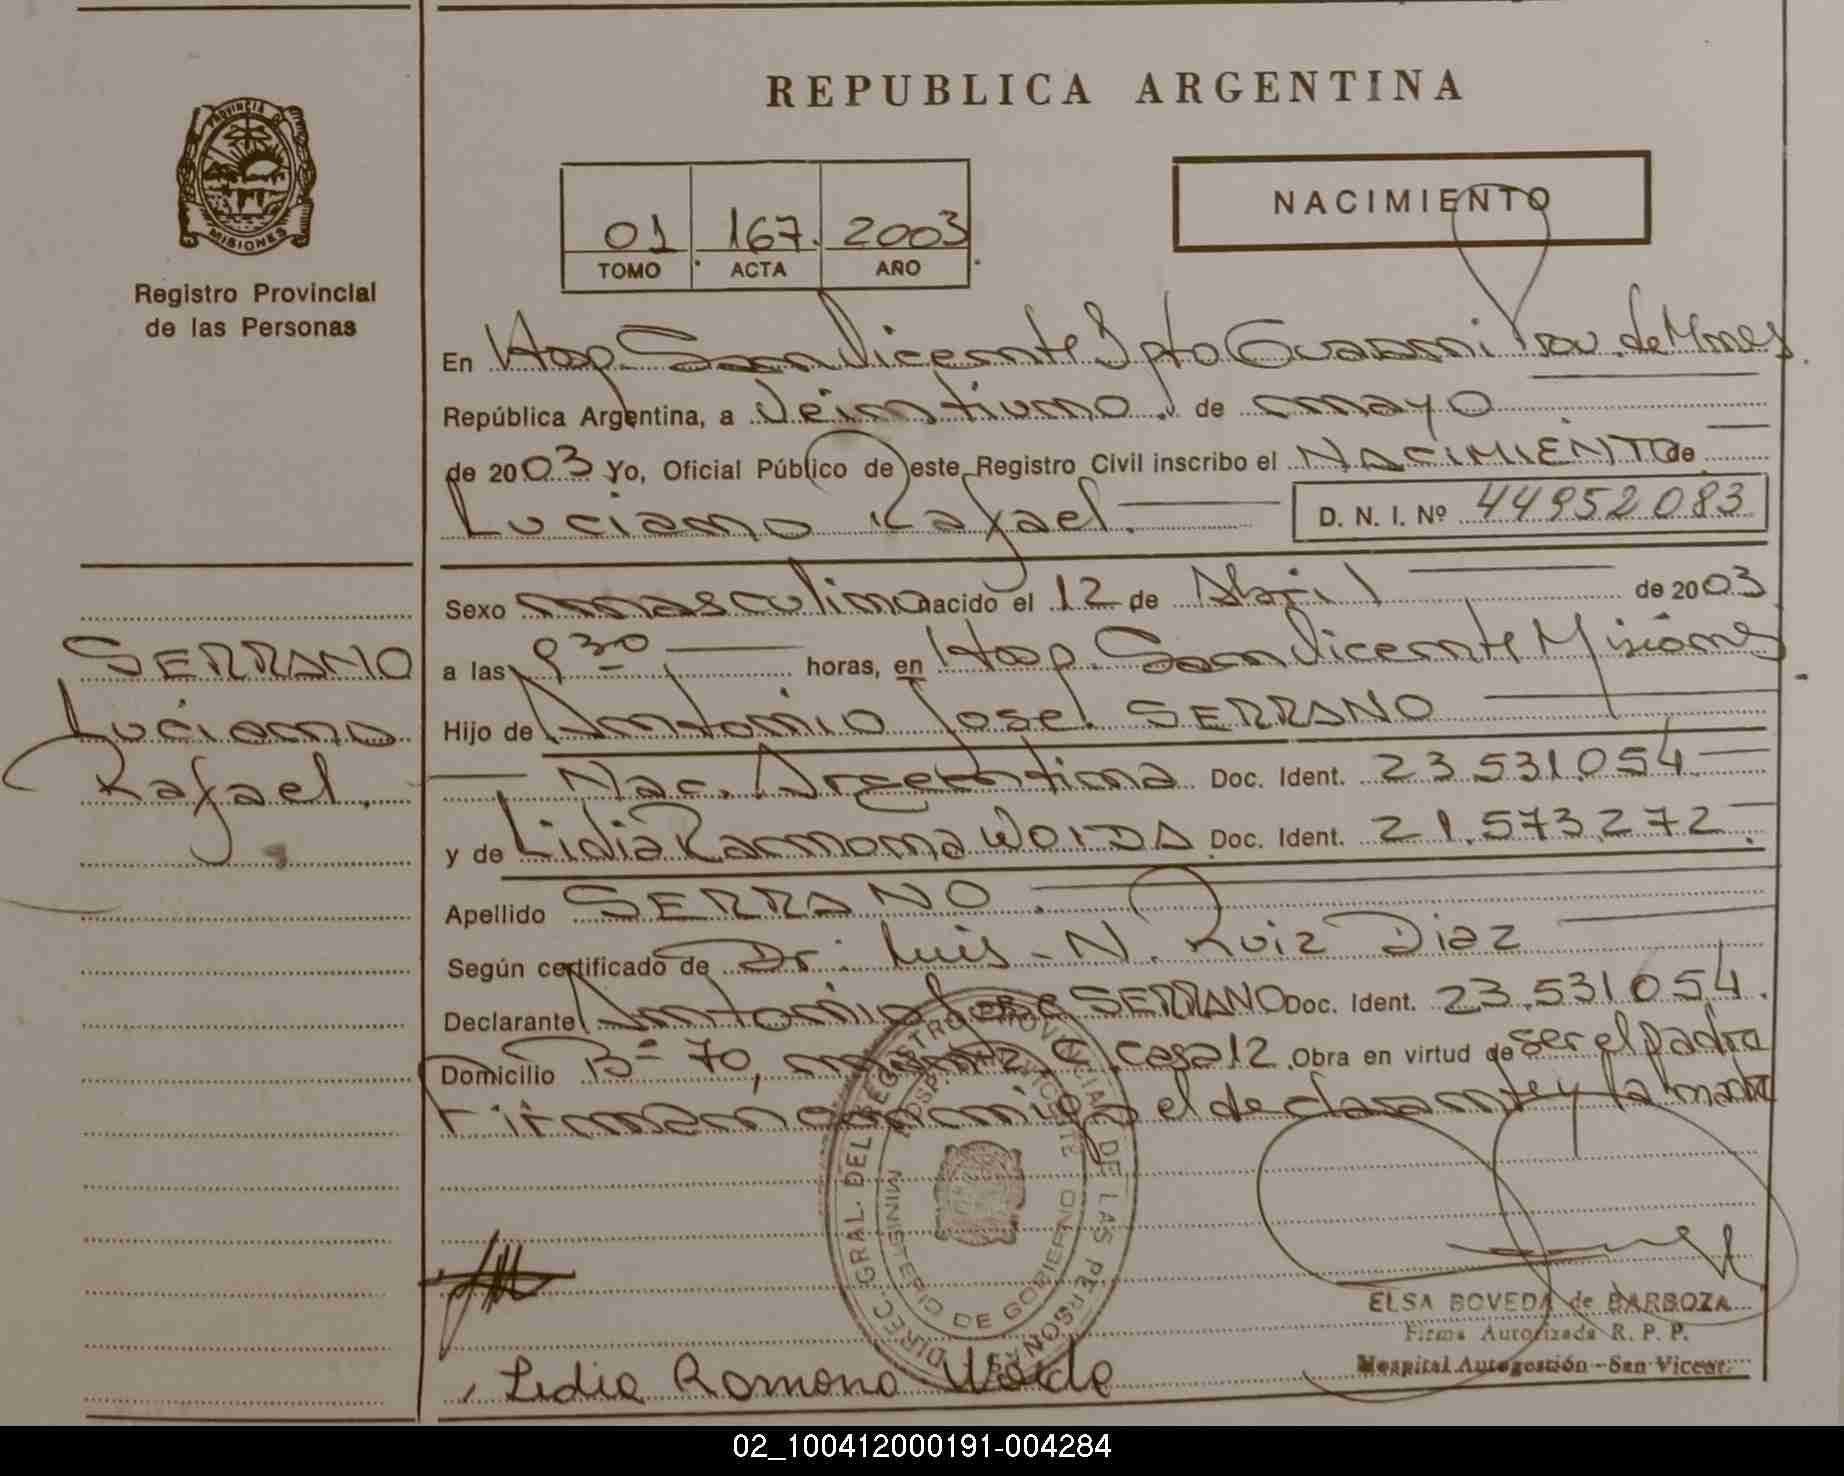 REPUBLICA ARGENTINA
PROVINCIA DE
MISIONES
Registro Provincial
de las Personas
01 167. 2003
TOMO ACTA AÑO
NACIMIENTO
En Hosp. San Vicente Dpto Guarani Prov. de Mnes.
República Argentina, a Veintiuno de mayo
de 2003 Yo, Oficial Público de este Registro Civil inscribo el NACIMIENTO de
Luciano Rafael. D. N. I. Nº 44952083
Sexo masculino nacido el 12 de Abril de 2003
SERRANO
Luciano
Rafael.
a las 9 30 horas, en Hosp. San Vicente Misiones
Hijo de Antonio Jose SERRANO
Nac. Argentina Doc. Ident. 23.531.054
y de Lidia Ramona WOIDA Doc. Ident. 21.573.272
Apellido SERRANO
Según certificado de Dr. Luis N. Ruiz Diaz
Declarante Antonio Jose SERRANO Doc. Ident. 23.531.054.
Domicilio Bº 70, casa 12 Obra en virtud de ser el padre
Firman conmigo el declarante y la madre
DIREC. GRAL. DEL REGISTRO PROVINCIAL DE LAS PERSONAS
MINISTERIO DE GOBIERNO
Lidia Ramona Woida
ELSA BOVEDA de BARBOZA
Firma Autorizada R. P. P.
Hospital Autogestión - San Vicente
02_100412000191-004284